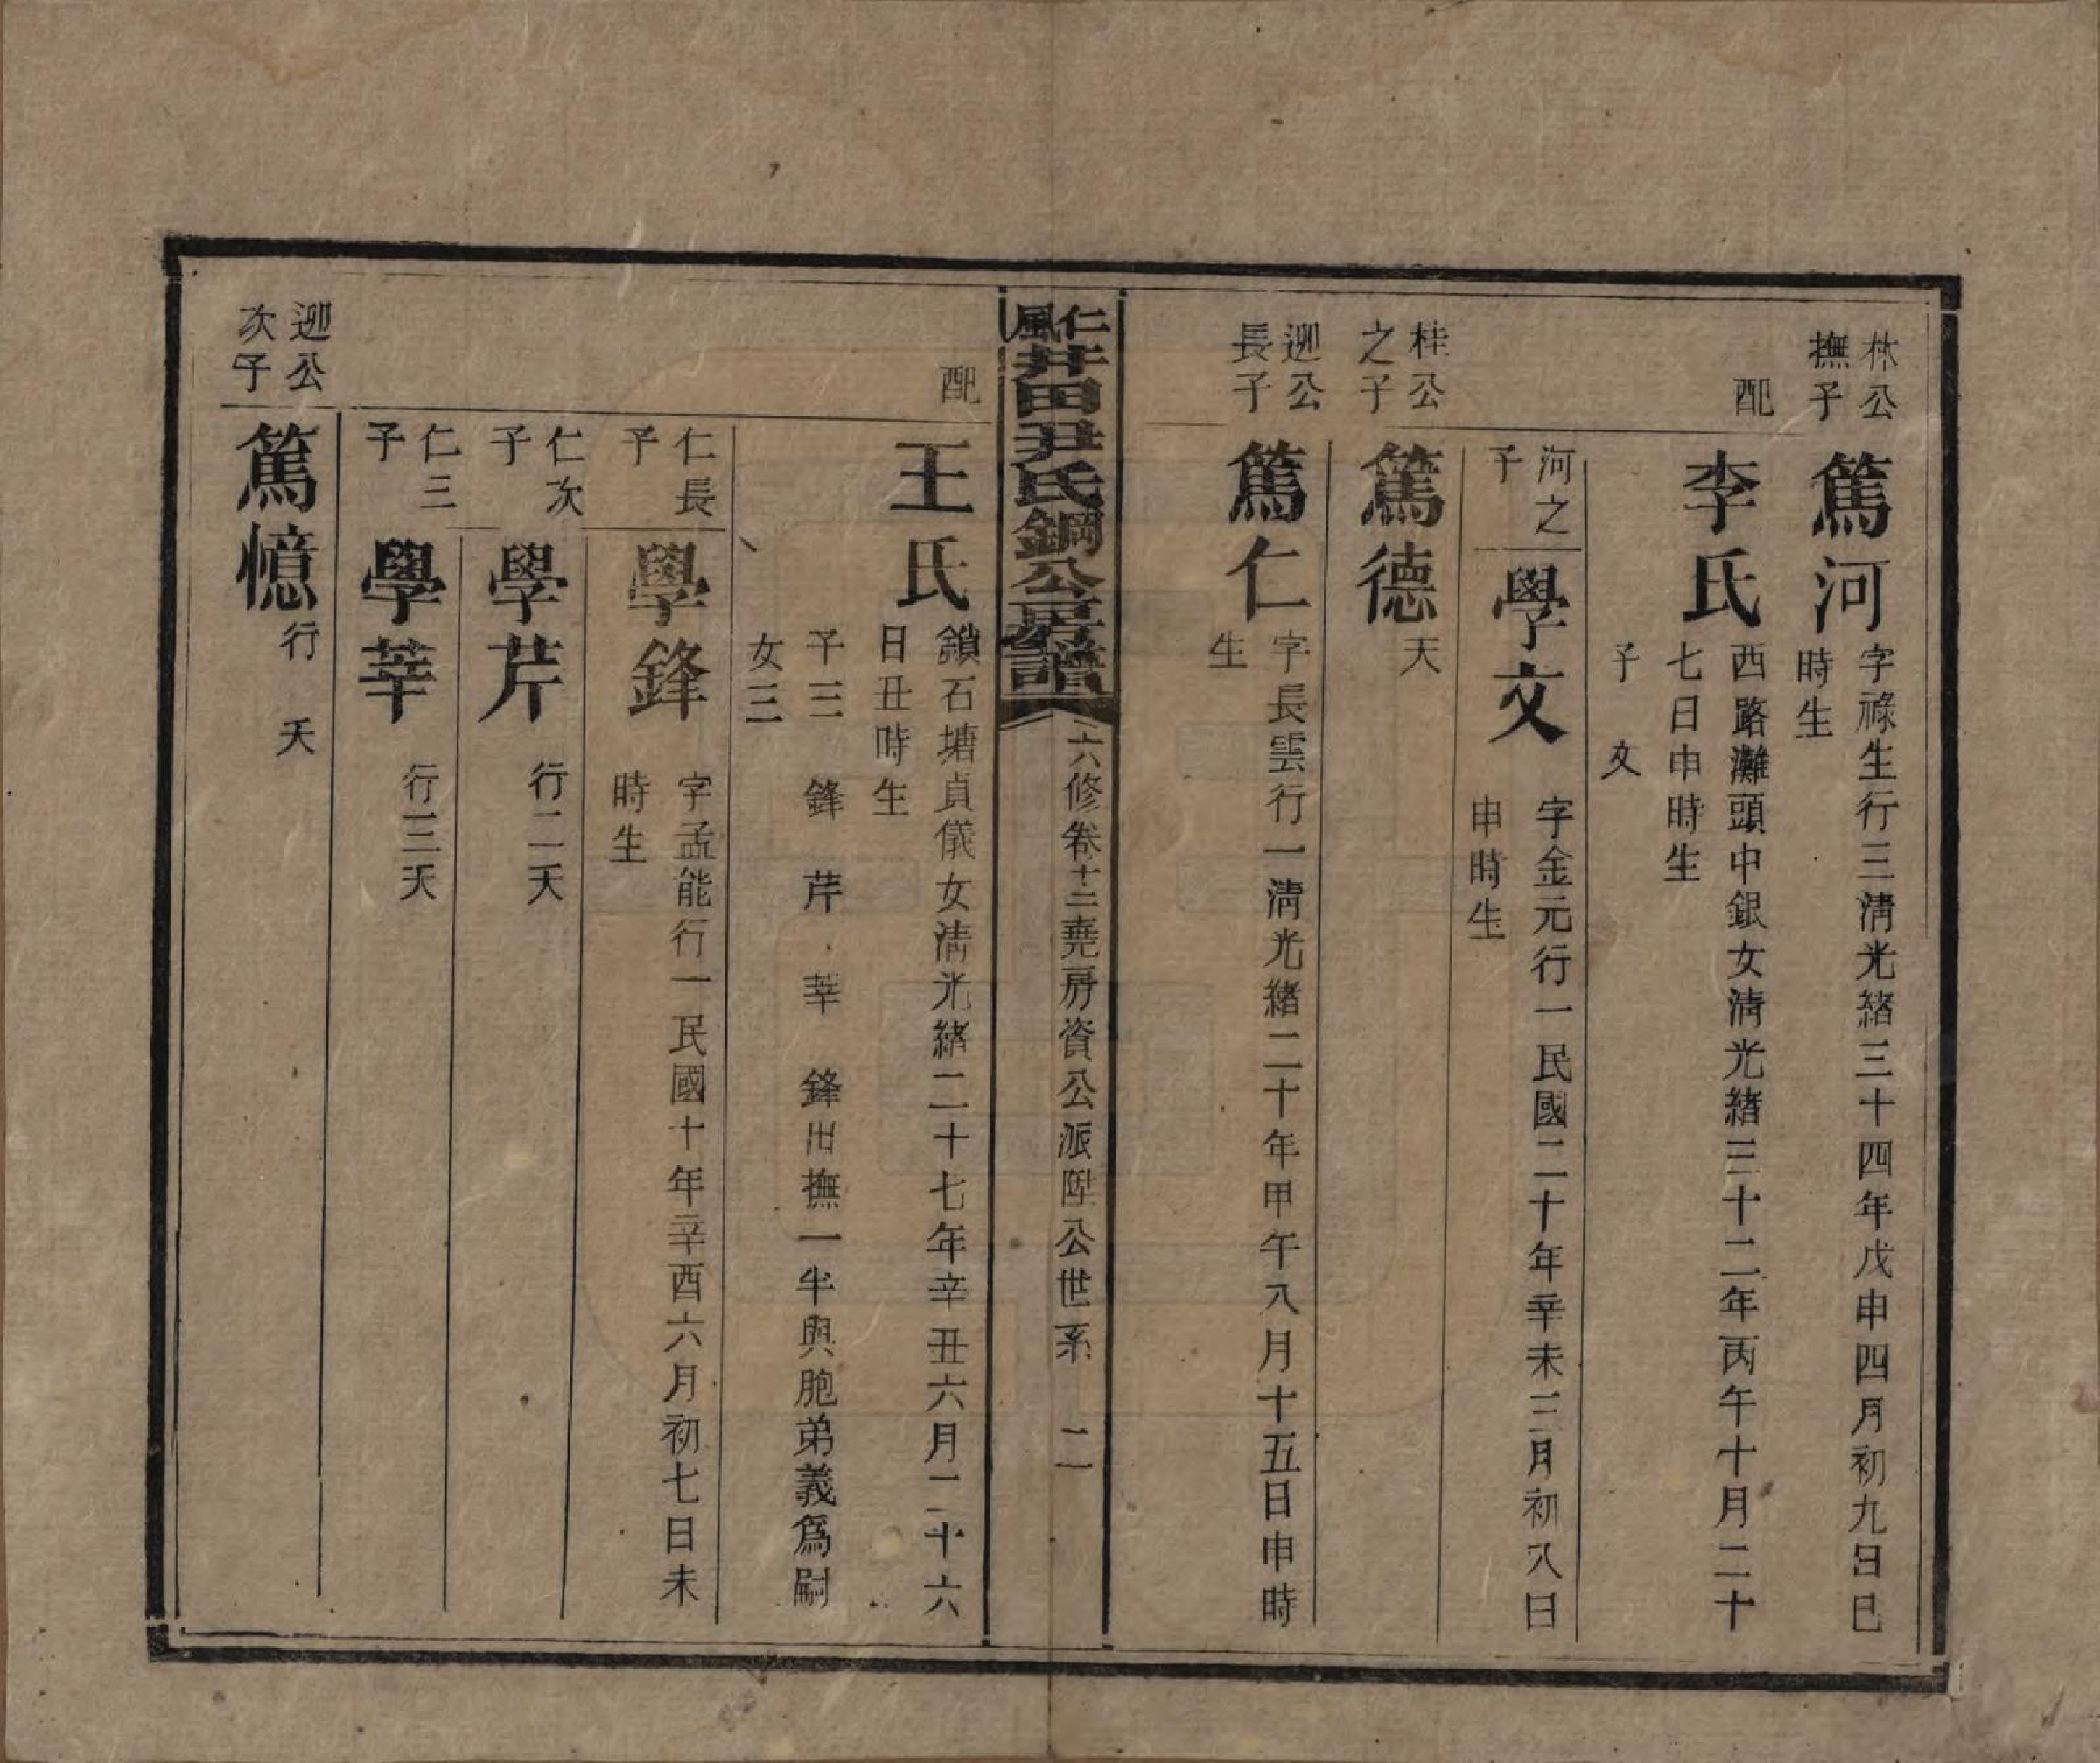 林公
撫子
篤河
字祿生行三淸光緒三十四年戊申四月初九日巳
時生
配
李氏
西路灘頭中銀女淸光緒三十二年丙午十月二十
七日申時生
子 文
河之
子
學文
字金元行一民國二十年辛未三月初八日
申時生
桂公
之子
篤德
夭
迎公
長子
篤仁
字長雲行一淸光緒二十年甲午八月十五日申時
生
仁風井田尹氏鋼公房譜
六修卷十三堯房資公派陞公世系 二
配
王氏
鎖石塘貞儀女淸光緒二十七年辛丑六月二十六
日丑時生
子三 鋒 芹 莘 鋒出撫一半與胞弟義爲嗣
女三
仁長
子
學鋒
字孟能行一民國十年辛酉六月初七日未
時生
仁次
子
學芹
行二夭
仁三
子
學莘
行三夭
迎公
次子
篤憶
行 夭